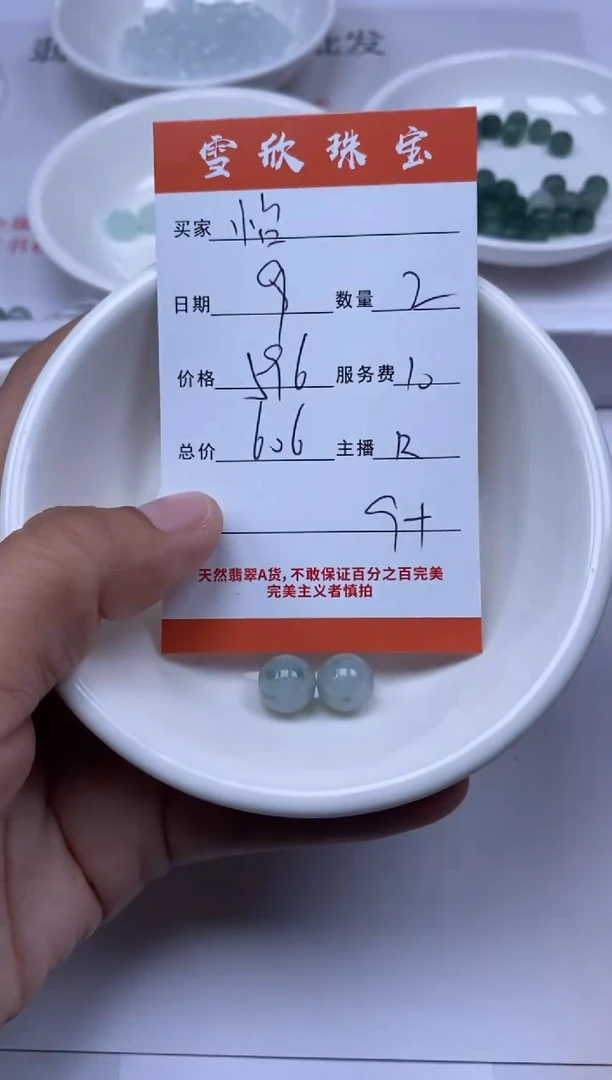 批发
雪欣珠宝
买家 怡
日期 9 数量 2
价格 596 服务费 10
总价 606 主播 R
9+
天然翡翠A货,不敢保证百分之百完美
完美主义者慎拍